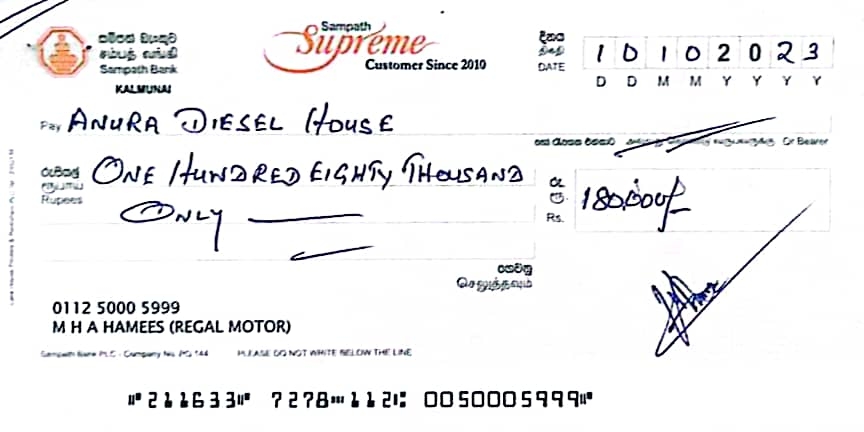 සම්පත් බැංකුව
சம்பத் வங்கி
Sampath Bank
KALMUNAI
Sampath
Supreme
Customer Since 2010
දිනය
திகதி
DATE
1 0 1 0 2 0 2 3
D D M M Y Y Y Y
Pay ANURA DIESEL HOUSE
Or Bearer
රුපියල්
ரூபாய
Rupees
ONE HUNDRED EIGHTY THOUSAND
ONLY
රු
ரூ.
Rs.
180,000/-
ගෙවනු
செலுத்தவும்
0112 5000 5999
M H A HAMEES (REGAL MOTOR)
Sampath Bank PLC - Company No. PQ 144 PLEASE DO NOT WRITE BELOW THE LINE
⑈211633⑈ 7278⑉112⑆ 0050005999⑈